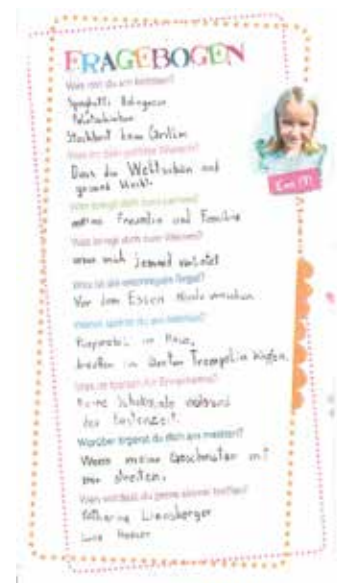 FRAGEBOGEN
Was isst du am liebsten?
Spaghetti Bolognese
Palatschinken
Stockbrot beim Grillen
Was ist dein größter Wunsch?
Dass die Welt schön und
gesund bleibt.
Wer bringt dich zum Lachen?
meine Freundin und Familie
Was bringt dich zum Weinen?
wenn mich jemand verletzt
Was ist die wichtigste Regel?
Vor dem Essen Hände waschen
Wo spielst du am liebsten?
im Haus,
draußen im Garten Trampolin hüpfen.
Was ist typisch für Erwachsene?
Keine Schokolade während
der Fastenzeit.
Worüber ärgerst du dich am meisten?
Wenn meine Geschwister mit
mir streiten.
Wen würdest du gerne einmal treffen?
Katharina Liensberger